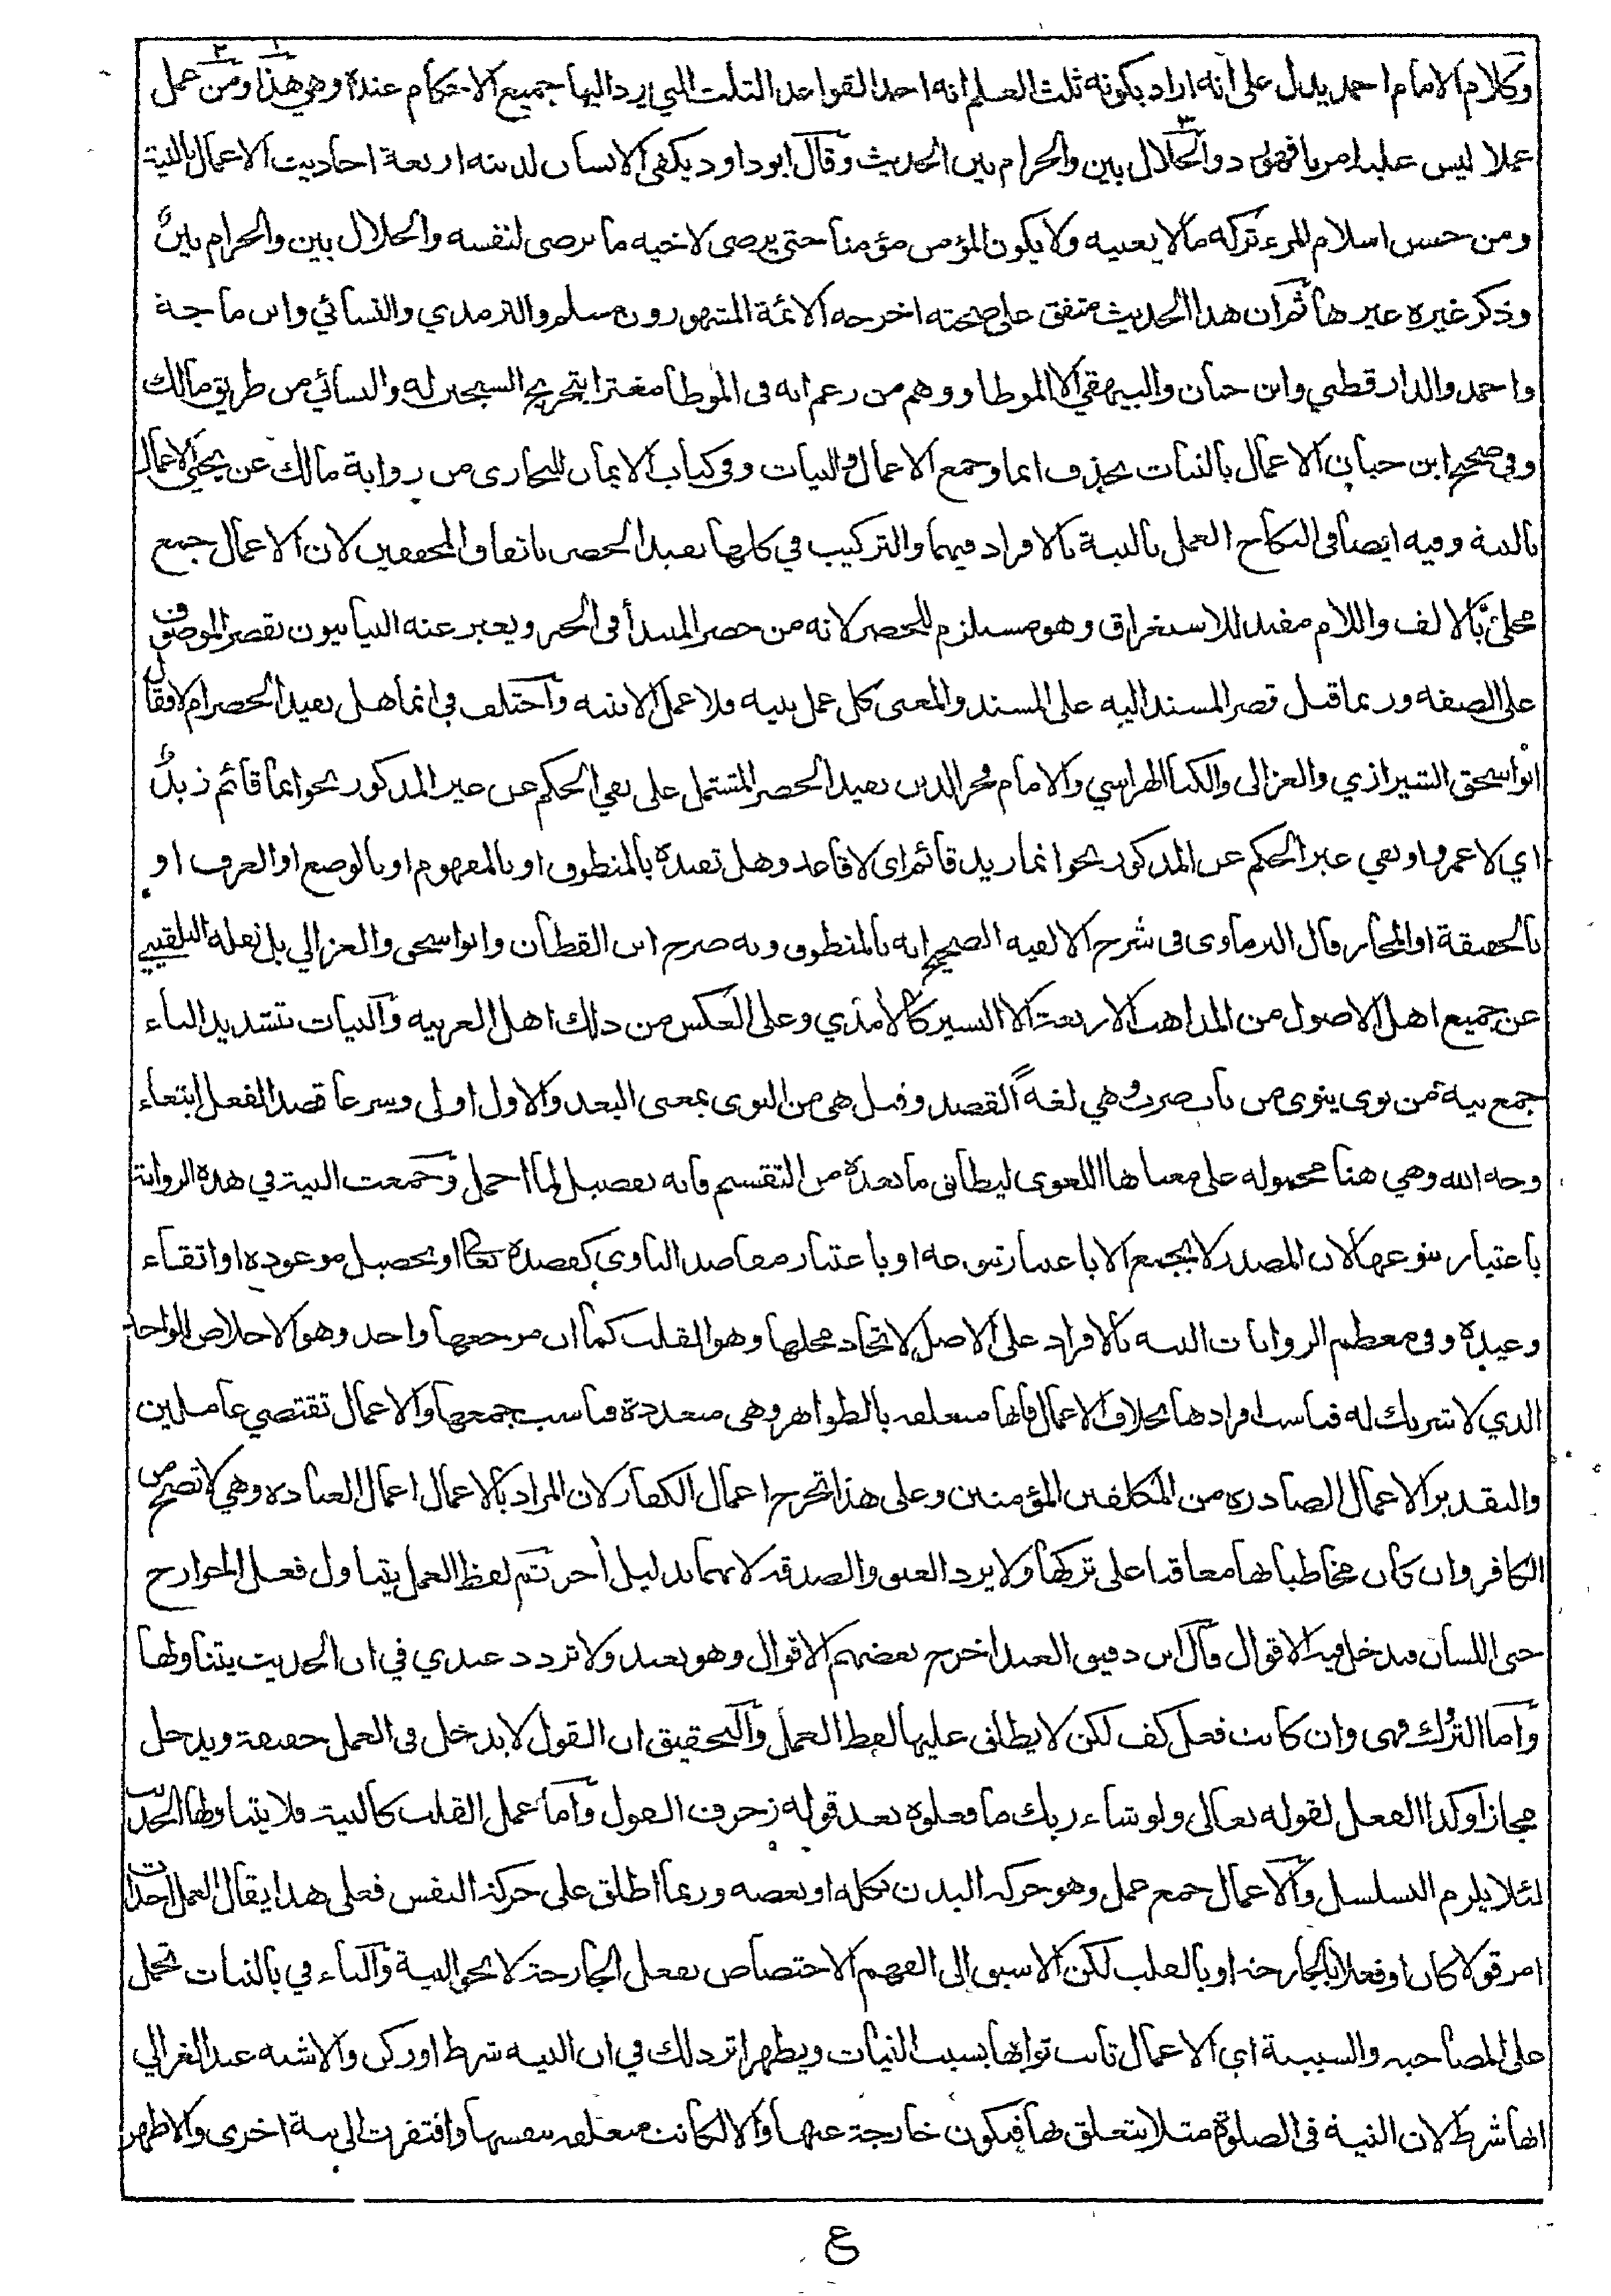 وكلام الامام احمد يدل على انه اراد بكونه ثلث العلم انه احد القواعد الثلث التي يرد اليها جميع الاحكام عنده وهي هذا ومن عمل
عملا ليس عليه امرنا فهو رد والحلال بين والحرام بين الحديث وقال ابو داود يكفى الانسان لدينه اربعة احاديث الاعمال بالنية
ومن حسن اسلام المرء تركه مالا يعنيه ولا يكون المؤمن مؤمنا حتى يرضى لاخيه ما يرضى لنفسه والحلال بين والحرام بين
وذكر غيره غيرها ثم ان هذا الحديث متفق على صحته اخرجه الائمة المشهورون مسلم والترمذي والنسائي وابن ماجة
واحمد والدارقطني وابن حبان والبيهقي الا الموطا ووهم من زعم انه فى الموطا مغترا بتخريج الشيخين له والنسائي من طريق مالك
وفى صحيح ابن حبان الاعمال بالنيات بحذف انما وجمع الاعمال والنيات وفى كتاب الايمان للبخارى من رواية مالك عن يحيى الاعمال
بالنية وفيه ايضا فى النكاح العمل بالنية بالافراد فيهما والتركيب في كلها يفيد الحصر باتفاق المحققين لان الاعمال جمع
محلى بالالف واللام مفيد للاستغراق وهو مستلزم للحصر لانه من حصر المبتدأ فى الخبر ويعبر عنه البيانيون بقصر الموصوف
على الصفة وربما قيل قصر المسند اليه على المسند والمعنى كل عمل بنية فلا عمل الا بنية واختلف فى انما هل يفيد الحصر ام لا فقال
ابو اسحق الشيرازي والغزالى والكيا الهراسي والامام فخر الدين يفيد الحصر المشتمل على نفي الحكم عن غير المذكور نحو انما قائم زيد
اي لا عمرو او نفي غير الحكم عن المذكور نحو انما زيد قائم اى لا قاعد وهل تفيده بالمنطوق او بالمفهوم او بالوضع او العرف او
بالحقيقة او المجاز قال البرماوى فى شرح الالفيه الصحيح انه بالمنطوق وبه صرح ابن القطان وابو اسحق والغزالي بل نقله البلقيني
عن جميع اهل الاصول من المذاهب الاربعة الا اليسير كالآمدي وعلى العكس من ذلك اهل العربيه والنيات بتشديد الياء
جمع نية من نوى ينوى من باب ضرب وهي لغة القصد وقيل هى من النوى بمعنى البعد والاول اولى وشرعا قصد الفعل ابتغاء
وجه الله وهي هنا محموله على معناها اللغوى ليطابق ما بعده من التقسيم فانه تفصيل لما اجمل وجمعت النية في هذه الرواية
باعتبار تنوعها لان المصدر لا يجمع الا باعتبار تنوعه او باعتبار مقاصد الناوى كقصده تعالى او تحصيل موعوده او اتقاء
وعيده وفى معظم الروايات النيه بالافراد على الاصل لاتحاد محلها وهو القلب كما ان مرجعها واحد وهو الاخلاص للواحد
الذي لا شريك له فناسب افرادها بخلاف الاعمال فانها متعلقه بالظواهر وهى متعددة فناسب جمعها والاعمال تقتضي عاملين
والتقدير الاعمال الصادره من المكلفين المؤمنين وعلى هذا تخرج اعمال الكفار لان المراد بالاعمال اعمال العباده وهي لا تصح من
الكافر وان كان مخاطبا بها معاقبا على تركها ولا يرد العتق والصدقه لانهما بدليل أخر ثم لفظ العمل يتناول فعل الجوارح
حتى اللسان فيدخل فيه الاقوال قال ابن دقيق العيد اخرج بعضهم الاقوال وهو بعيد ولا تردد عندي في ان الحديث يتناولها
واما التروك فهى وان كانت فعل كف لكن لا يطلق عليها لفظ العمل والتحقيق ان القول لا يدخل فى العمل حقيقة ويدخل
مجازا وكذا الفعل لقوله تعالى ولو شاء ربك ما فعلوه بعد قوله زخرف القول واما عمل القلب كالنية فلا يتناولها الحديث
لئلا يلزم التسلسل والاعمال جمع عمل وهو حركة البدن بكله او بعضه وربما اطلق على حركة النفس فعلى هذا يقال العمل احداث
امر قولا كان او فعلا بالجارحة او بالقلب لكن الاسبق الى الفهم الاختصاص بفعل الجارحة لا نحو النية والباء في بالنيات تحمل
على المصاحبه والسببية اي الاعمال ثابت ثوابها بسبب النيات ويظهر اثر ذلك في ان النيه شرط او ركن والاشبه عند الغزالي
انها شرط لان النية فى الصلوة مثلا يتعلق بها فيكون خارجة عنها والا لكانت متعلقه بنفسها وافتقرت الى نية اخرى والاظهر
ع